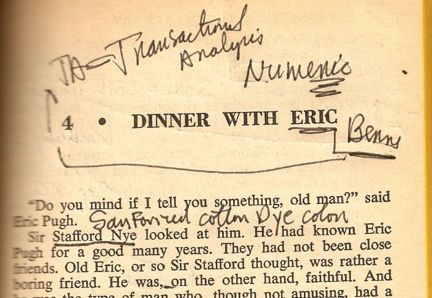 TA = Transactional
Analysis
Numenic
4 • DINNER WITH ERIC
Benns
"Do you mind if I tell you something, old man?" said
Eric Pugh. Sanforized cotton Dye colon
Sir Stafford Nye looked at him. He had known Eric
Pugh for a good many years. They had not been close
friends. Old Eric, or so Sir Stafford thought, was rather a
boring friend. He was, on the other hand, faithful. And
was the type of man who, though not amusing, had a